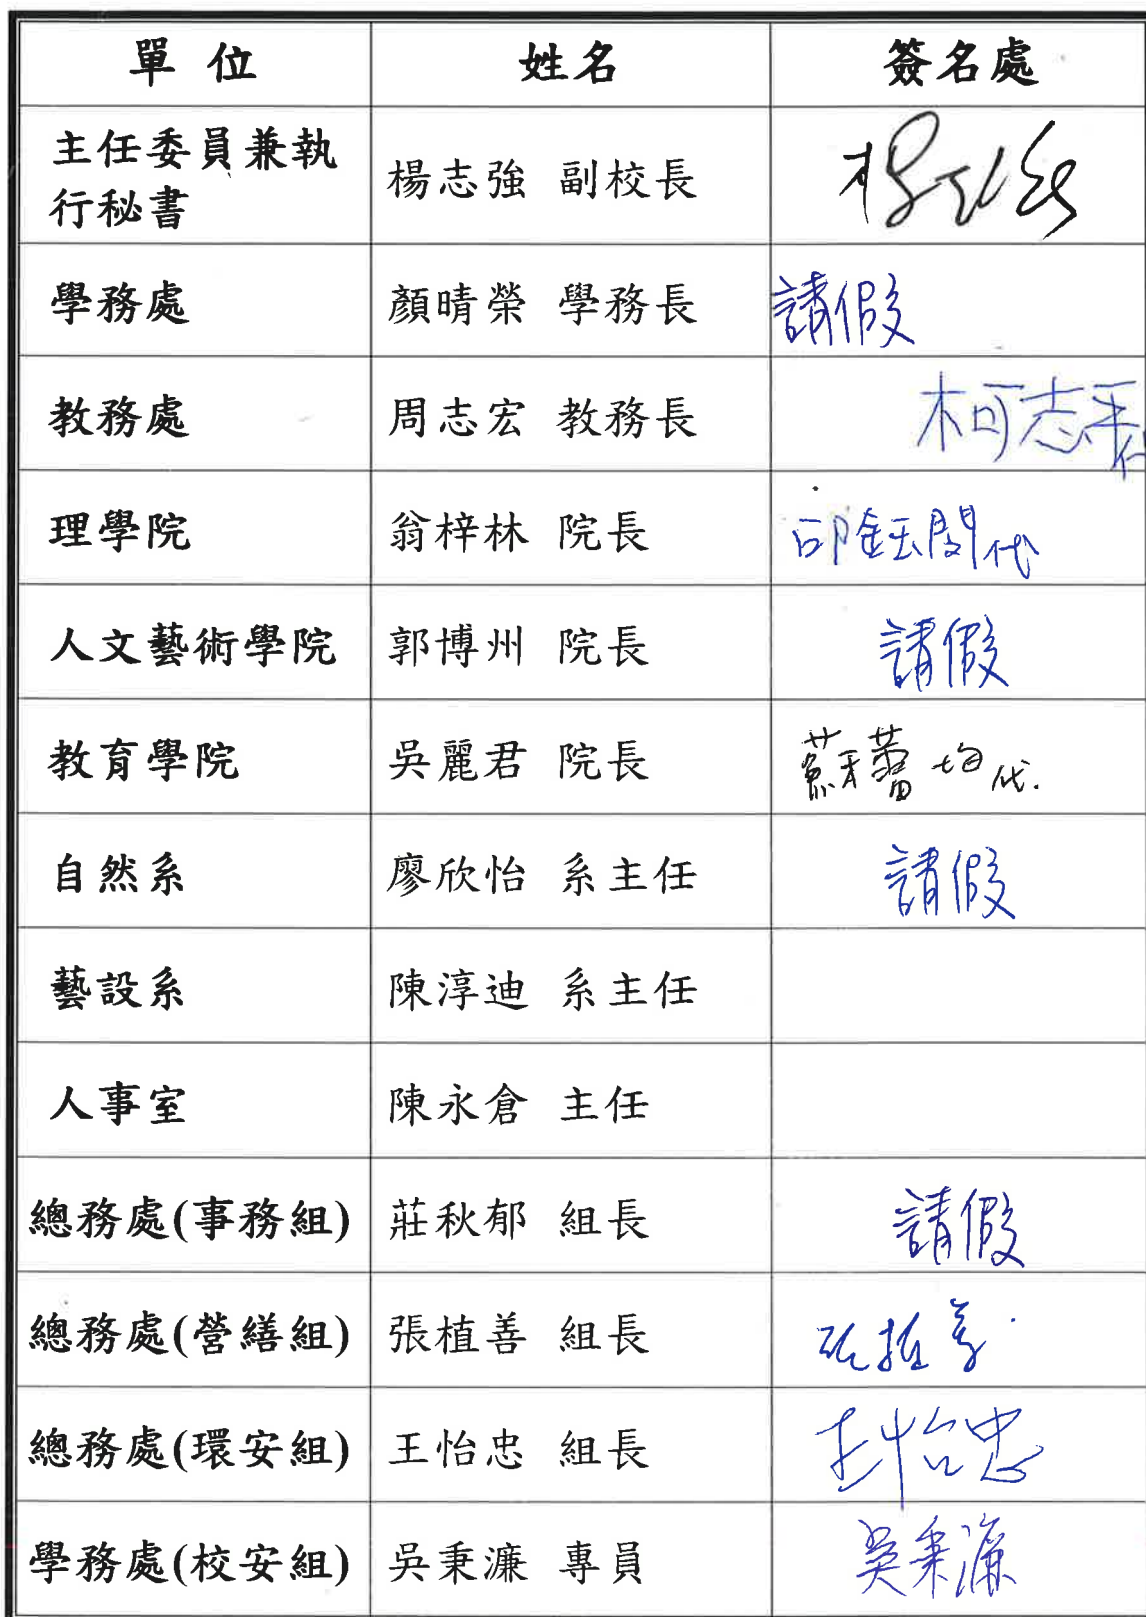 單位 姓名 簽名處
主任委員兼執
行秘書 楊志強 副校長 楊志強
學務處 顏晴榮 學務長 請假
教務處 周志宏 教務長 柯志平代
理學院 翁梓林 院長 邱鈺閔代
人文藝術學院 郭博州 院長 請假
教育學院 吳麗君 院長 蘇蕾均代.
自然系 廖欣怡 系主任 請假
藝設系 陳淳迪 系主任
人事室 陳永倉 主任
總務處(事務組) 莊秋郁 組長 請假
總務處(營繕組) 張植善 組長 張植善
總務處(環安組) 王怡忠 組長 王怡忠
學務處(校安組) 吳秉濂 專員 吳秉濂